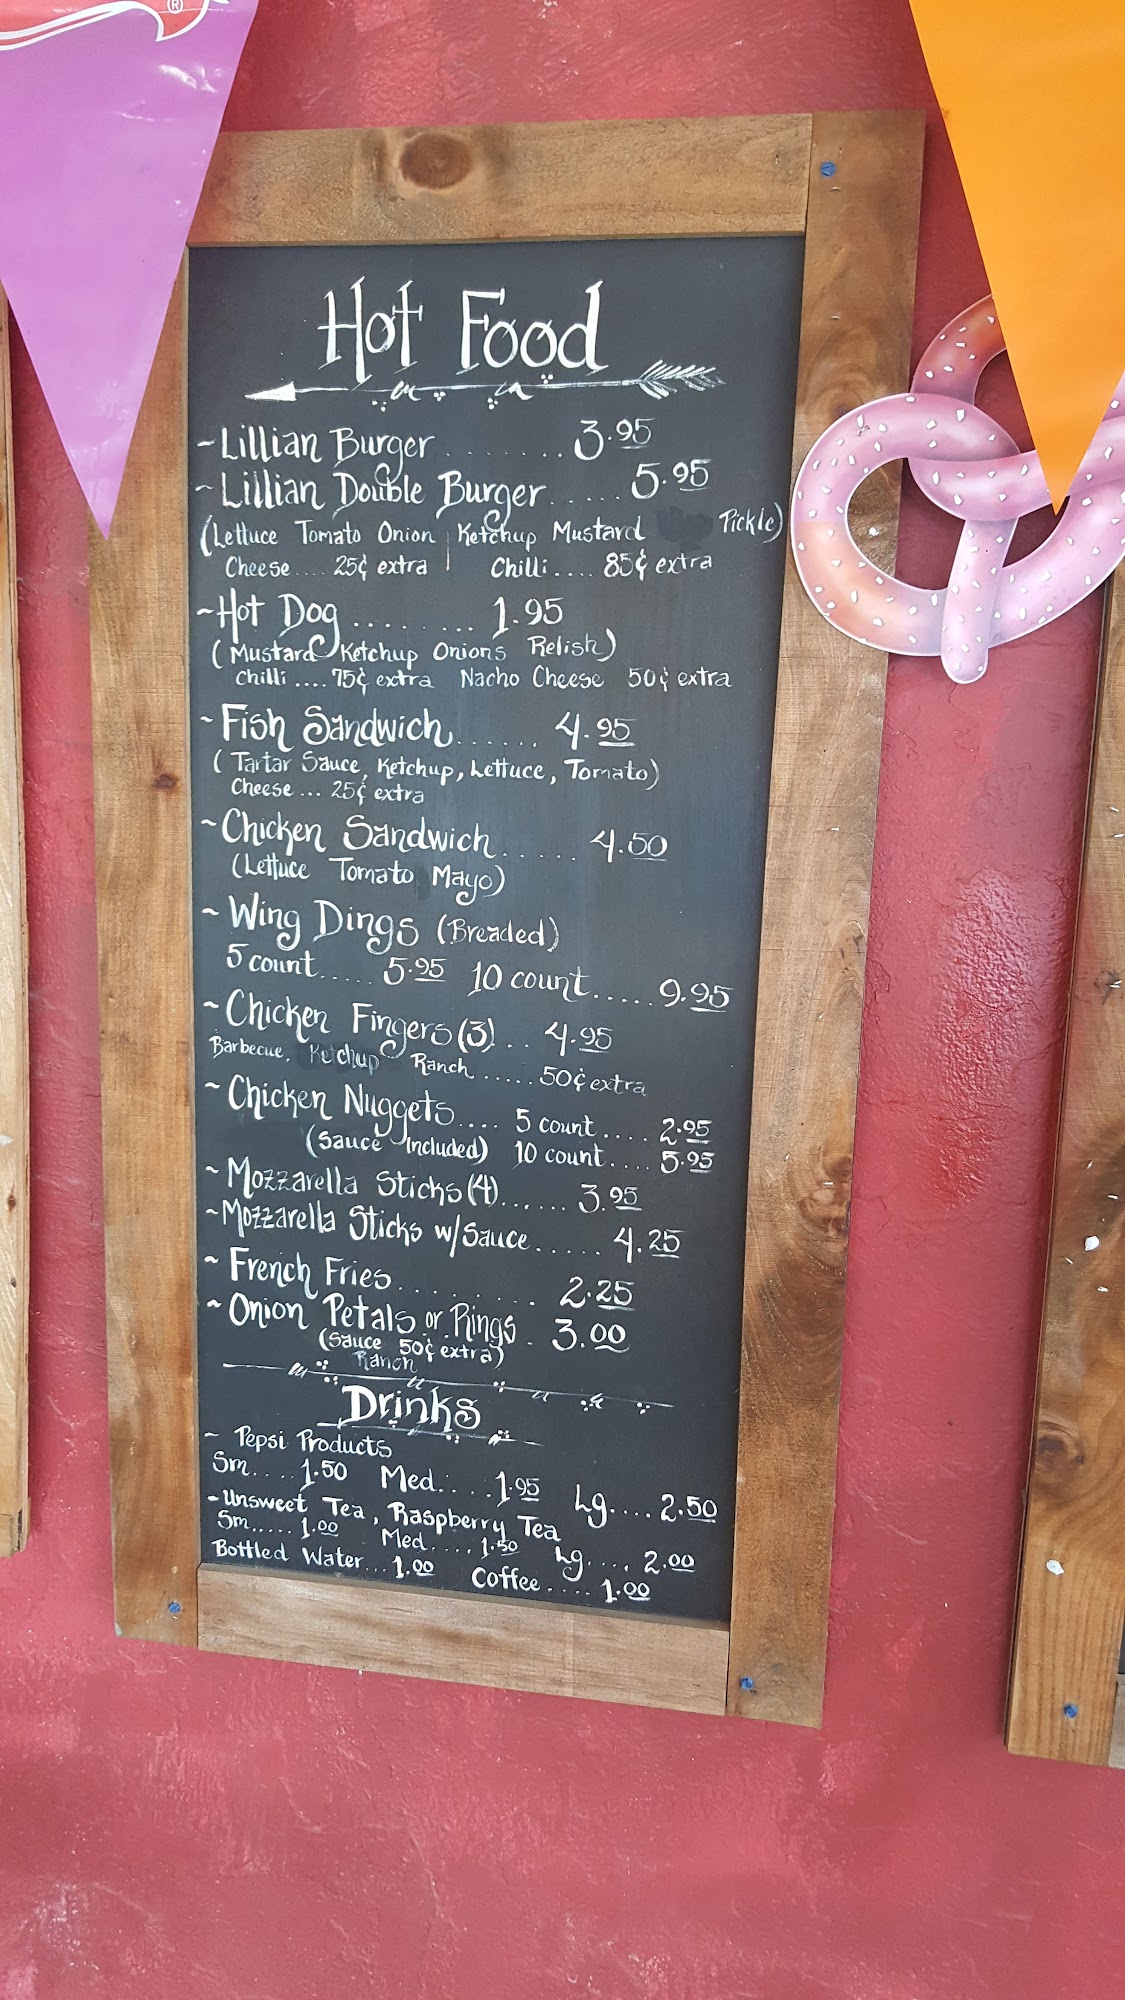 ®
Hot Food
~Lillian Burger ........ 3.95
~Lillian Double Burger ..... 5.95
(Lettuce Tomato Onion Ketchup Mustard Pickle)
Cheese .... 25¢ extra | Chilli .... 85¢ extra
~Hot Dog ........ 1.95
(Mustard Ketchup Onions Relish)
Chilli .... 75¢ extra Nacho Cheese 50¢ extra
~Fish Sandwich ...... 4.95
(Tartar Sauce, Ketchup, Lettuce, Tomato)
Cheese ... 25¢ extra
~Chicken Sandwich ..... 4.50
(Lettuce Tomato Mayo)
~Wing Dings (Breaded)
5 count ..... 5.95 10 count ..... 9.95
~Chicken Fingers (3) .. 4.95
Barbecue, Ketchup Ranch ..... 50¢ extra
~Chicken Nuggets .... 5 count .... 2.95
(Sauce Included) 10 count .... 5.95
~Mozzarella Sticks (4) ...... 3.95
~Mozzarella Sticks w/Sauce ..... 4.25
~French Fries ........ 2.25
~Onion Petals or Rings . 3.00
(Sauce 50¢ extra)
Ranch
Drinks
~ Pepsi Products
Sm .... 1.50 Med .... 1.95 Lg .... 2.50
-Unsweet Tea, Raspberry Tea
Sm ..... 1.00 Med .... 1.50 Lg .... 2.00
Bottled Water ... 1.00 Coffee .... 1.00